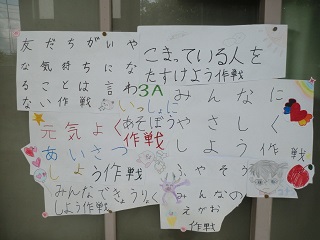 友だちがいや
な気持ちにな
ることは言わ
ない作戦
こまっている人を
たすけよう作戦
3A
みんなに
やさしく
しよう作戦
いっしょに
あそぼう
作戦
元気よく
あいさつ
しよう作戦
ふやそう
みんなの
えがお
作戦
みんなできょうりょく
しよう作戦